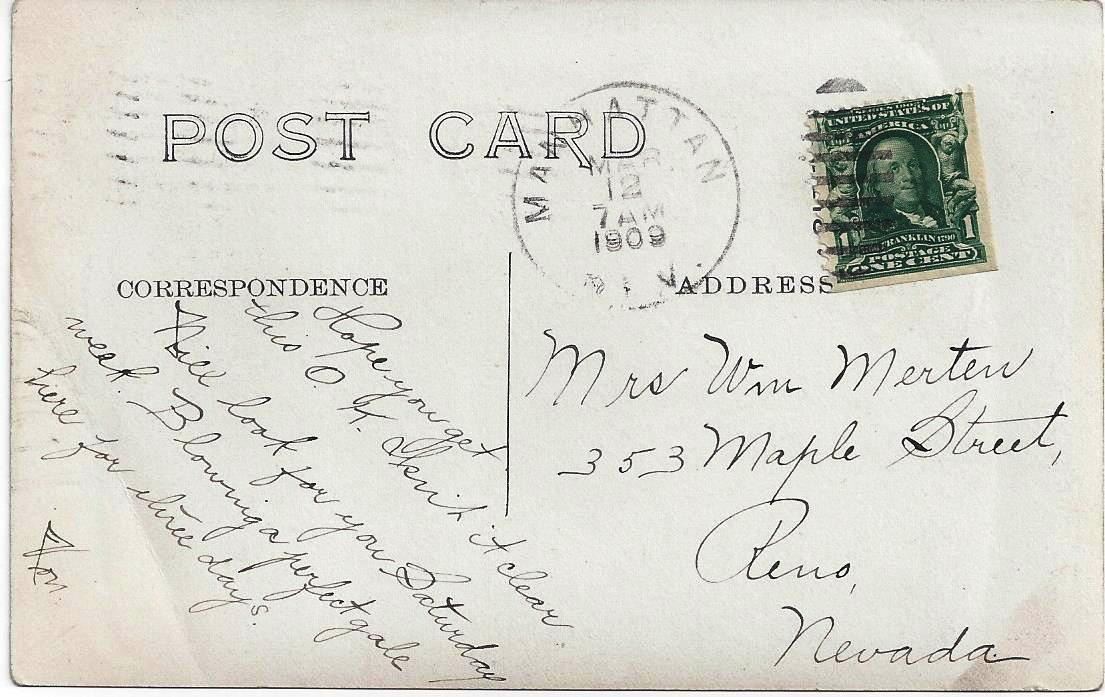 POST CARD
MANHATTAN
MAR
12
7 AM
1909
NEV.
UNITED STATES OF
AMERICA
FRANKLIN 1790
1 1
POSTAGE
ONE CENT
CORRESPONDENCE
Hope you get
this O.K. Isn't it clear.
Will look for you Saturday
week. Blowing a perfect gale
here for three days.
Von.
ADDRESS
Mrs Wm Merten
353 Maple Street,
Reno,
Nevada